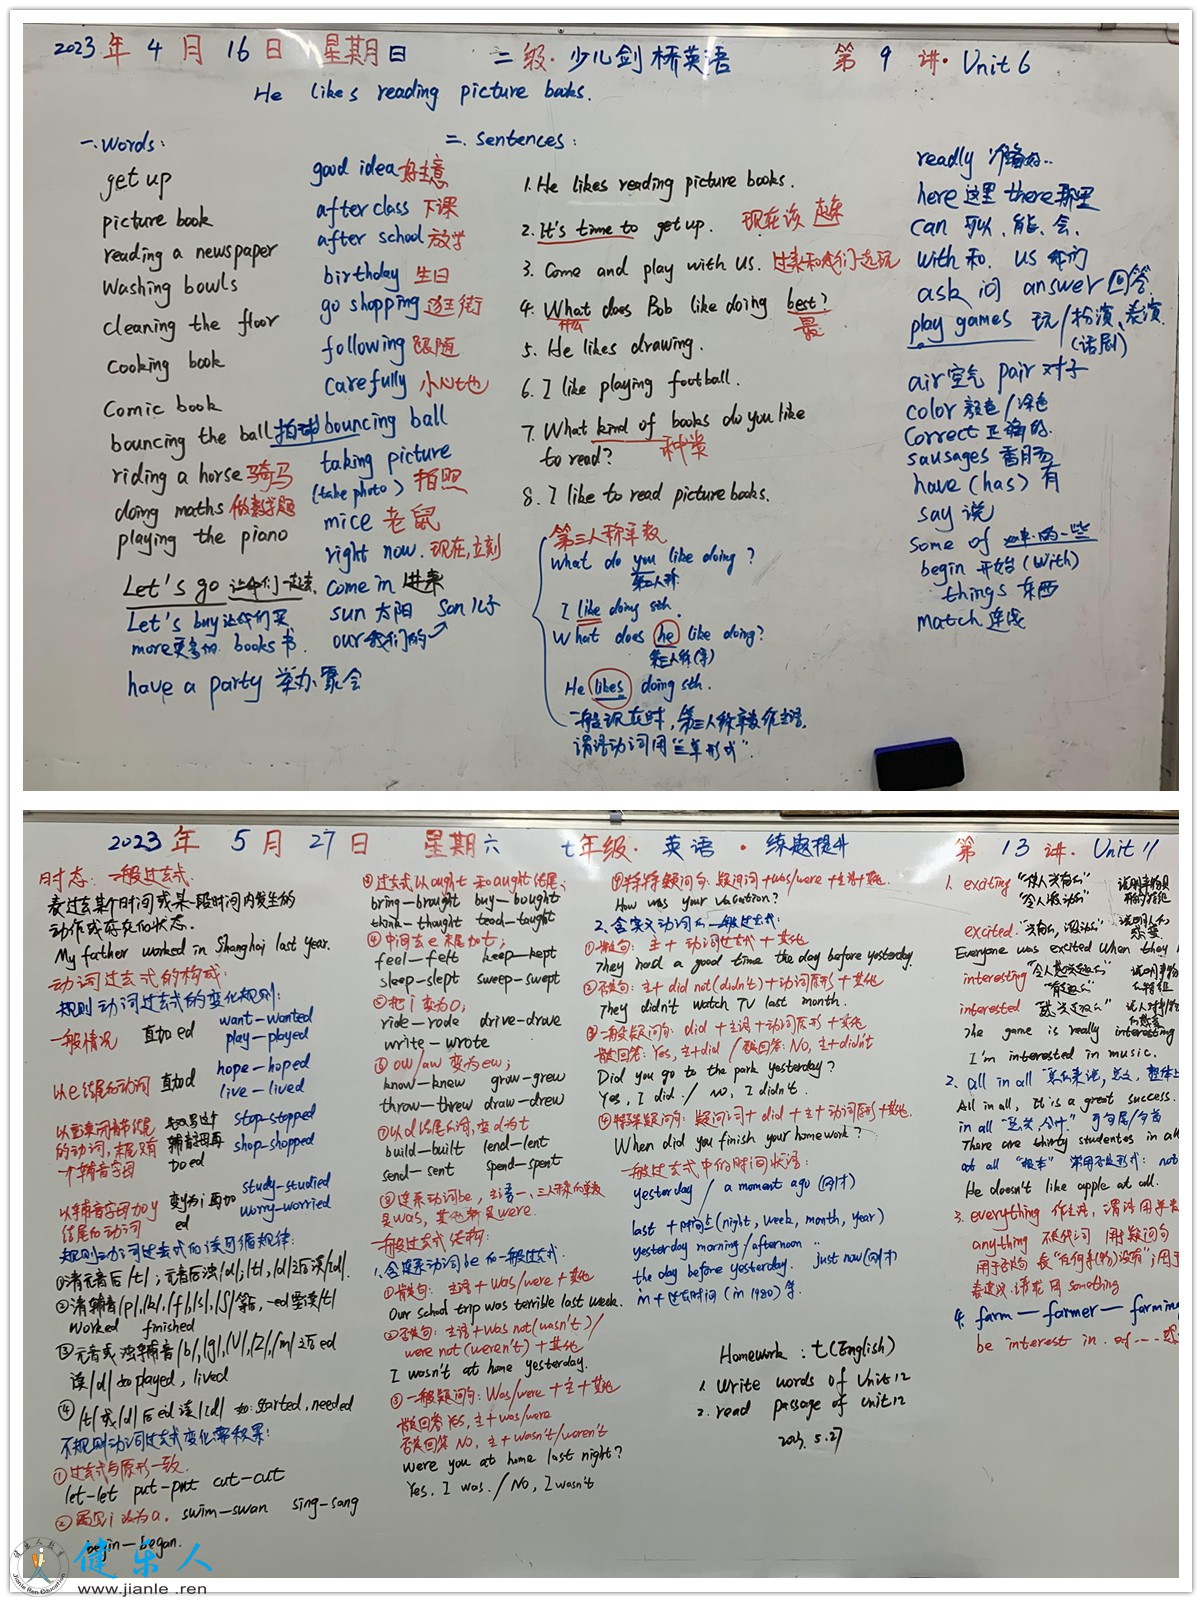 2023年4月16日 星期日 二级·少儿剑桥英语 第9讲·Unit 6
He likes reading picture books.
一.Words:
get up
picture book
reading a newspaper
washing bowls
cleaning the floor
cooking book
Comic book
bouncing the ball 拍球
riding a horse 骑马
doing maths 做数学题
playing the piano
Let's go 让我们一起去
Let's buy 让我们买
more更多的 books书
have a party 举办聚会
good idea 好主意
after class 下课
after school 放学
birthday 生日
go shopping 逛街
following 跟随
carefully 小心地
bouncing ball
taking picture
(take photo) 拍照
mice 老鼠
right now. 现在,立刻
come in 进来
sun 太阳 son 儿子
our 我们的
二. Sentences:
1. He likes reading picture books.
2. It's time to get up. 现在该起床
3. Come and play with us. 过来和我们一起玩
4. What does Bob like doing best?
什么 最
5. He likes drawing.
6. I like playing football.
7. What kind of books do you like
to read? 种类
8. I like to read picture books.
第三人称单数
What do you like doing?
第二人称
I like doing sth.
What does he like doing?
第三人称(单)
He likes doing sth.
一般现在时,第三人称单数作主语,
谓语动词用"三单形式".
readly 准备好..
here 这里 there 那里
can 可以、能、会.
with 和. us 我们
ask 问 answer 回答
play games 玩/扮演、表演
(话剧)
air 空气 pair 对子
color 颜色/涂色
Correct 正确的.
sausages 香肠
have (has) 有
say 说
some of 其中的一些
begin 开始 (with)
things 东西
match 连线
2023年5月27日 星期六 七年级·英语·练题提升 第13讲·Unit 11
时态:一般过去式.
表过去某个时间或某一段时间内发生的
动作或存在的状态.
My father worked in Shanghai last year.
动词过去式的构成:
规则动词过去式的变化规则:
一般情况 直加ed want—wanted
play—played
以e结尾的动词 直加d hope—hoped
live—lived
以重读闭音节结尾
的动词,末尾只有
一个辅音字母
双写这个
辅音字母再
加ed
stop—stopped
shop—shopped
以辅音字母加y
结尾的动词
变y为i再加
ed
study—studied
worry—worried
规则动词过去式的读音循规律:
①清元音后/t/;元音后浊/d/;/t/,/d/之后读/ɪd/.
②清辅音/p/,/k/,/f/,/s/,/ʃ/等后,-ed要读/t/
worked finished
③元音或浊辅音/b/,/g/,/v/,/z/,/m/之后ed
读/d/如played, lived
④/t/或/d/后ed读/ɪd/ 如:started, needed
不规则动词过去式变化需积累:
①过去式与原形一致.
let-let put-put cut-cut
②遇见i改为a. swim—swam sing-sang
begin—began.
③过去式以ought和aught结尾;
bring-brought buy-bought
think-thought teach-taught
④中间去e末尾加t;
feel-felt keep-kept
sleep-slept sweep-swept
⑤把i变为o;
ride-rode drive-drove
write-wrote
⑥ow/aw变为ew;
know-knew grow-grew
throw-threw draw-drew
⑦以d结尾的词,变d为t
build-built lend-lent
send-sent spend-spent
⑧连系动词be,主语一、三人称的单数
是was,其他都是were.
一般过去式结构:
1.含连系动词be的一般过去式.
①肯定句:主语+was/were+其他
Our school trip was terrible last week.
②否定句:主语+was not(wasn't)/
were not(weren't)+其他
I wasn't at home yesterday.
③一般疑问句:Was/were+主+其他
肯定回答 Yes,主+was/were
否定回答 No,主+wasn't/weren't
Were you at home last night?
Yes, I was./No, I wasn't
④特殊疑问句:疑问词+was/were+主+其他.
How was your vacation?
2.含实义动词的一般过去式:
①肯定句:主+动词过去式+其他
They had a good time the day before yesterday.
②否定句:主+did not(didn't)+动词原形+其他
They didn't watch TV last month.
③一般疑问句:did+主语+动词原形+其他
肯定回答:Yes,主+did/否定回答:No,主+didn't
Did you go to the park yesterday?
Yes, I did./ No, I didn't.
④特殊疑问句:疑问词+did+主+动词原形+其他.
When did you finish your homework?
一般过去式中的时间状语:
yesterday / a moment ago (刚才)
last+时间点(night, week, month, year)
yesterday morning/afternoon
the day before yesterday. just now(刚才)
in+过去时间(in 1980)等.
Homework:七(English)
1. write words of Unit 12
2. read passage of unit 12
2023.5.27
1. exciting "使人兴奋的"
"令人激动的"
excited
Everyone was excited when they
interesting "令人感兴趣的"
"有趣的"
interested "感兴趣的"
The game is really interesting
I'm interested in music.
2. all in all "总的来说,总之,整体上
All in all, It is a great success.
in all "总共,合计." 可句尾/句首
There are thirty students in all
at all "根本" 常用否定形式:not
He doesn't like apple at all.
3. everything 作主语,谓语用单数
anything 不定代词 用疑问句
用于否定句 表"任何事(物)没有";用于
表建议.请求 用 something
4. farm—farmer—farming
be interest in. of···
健乐人
www.jianle.ren